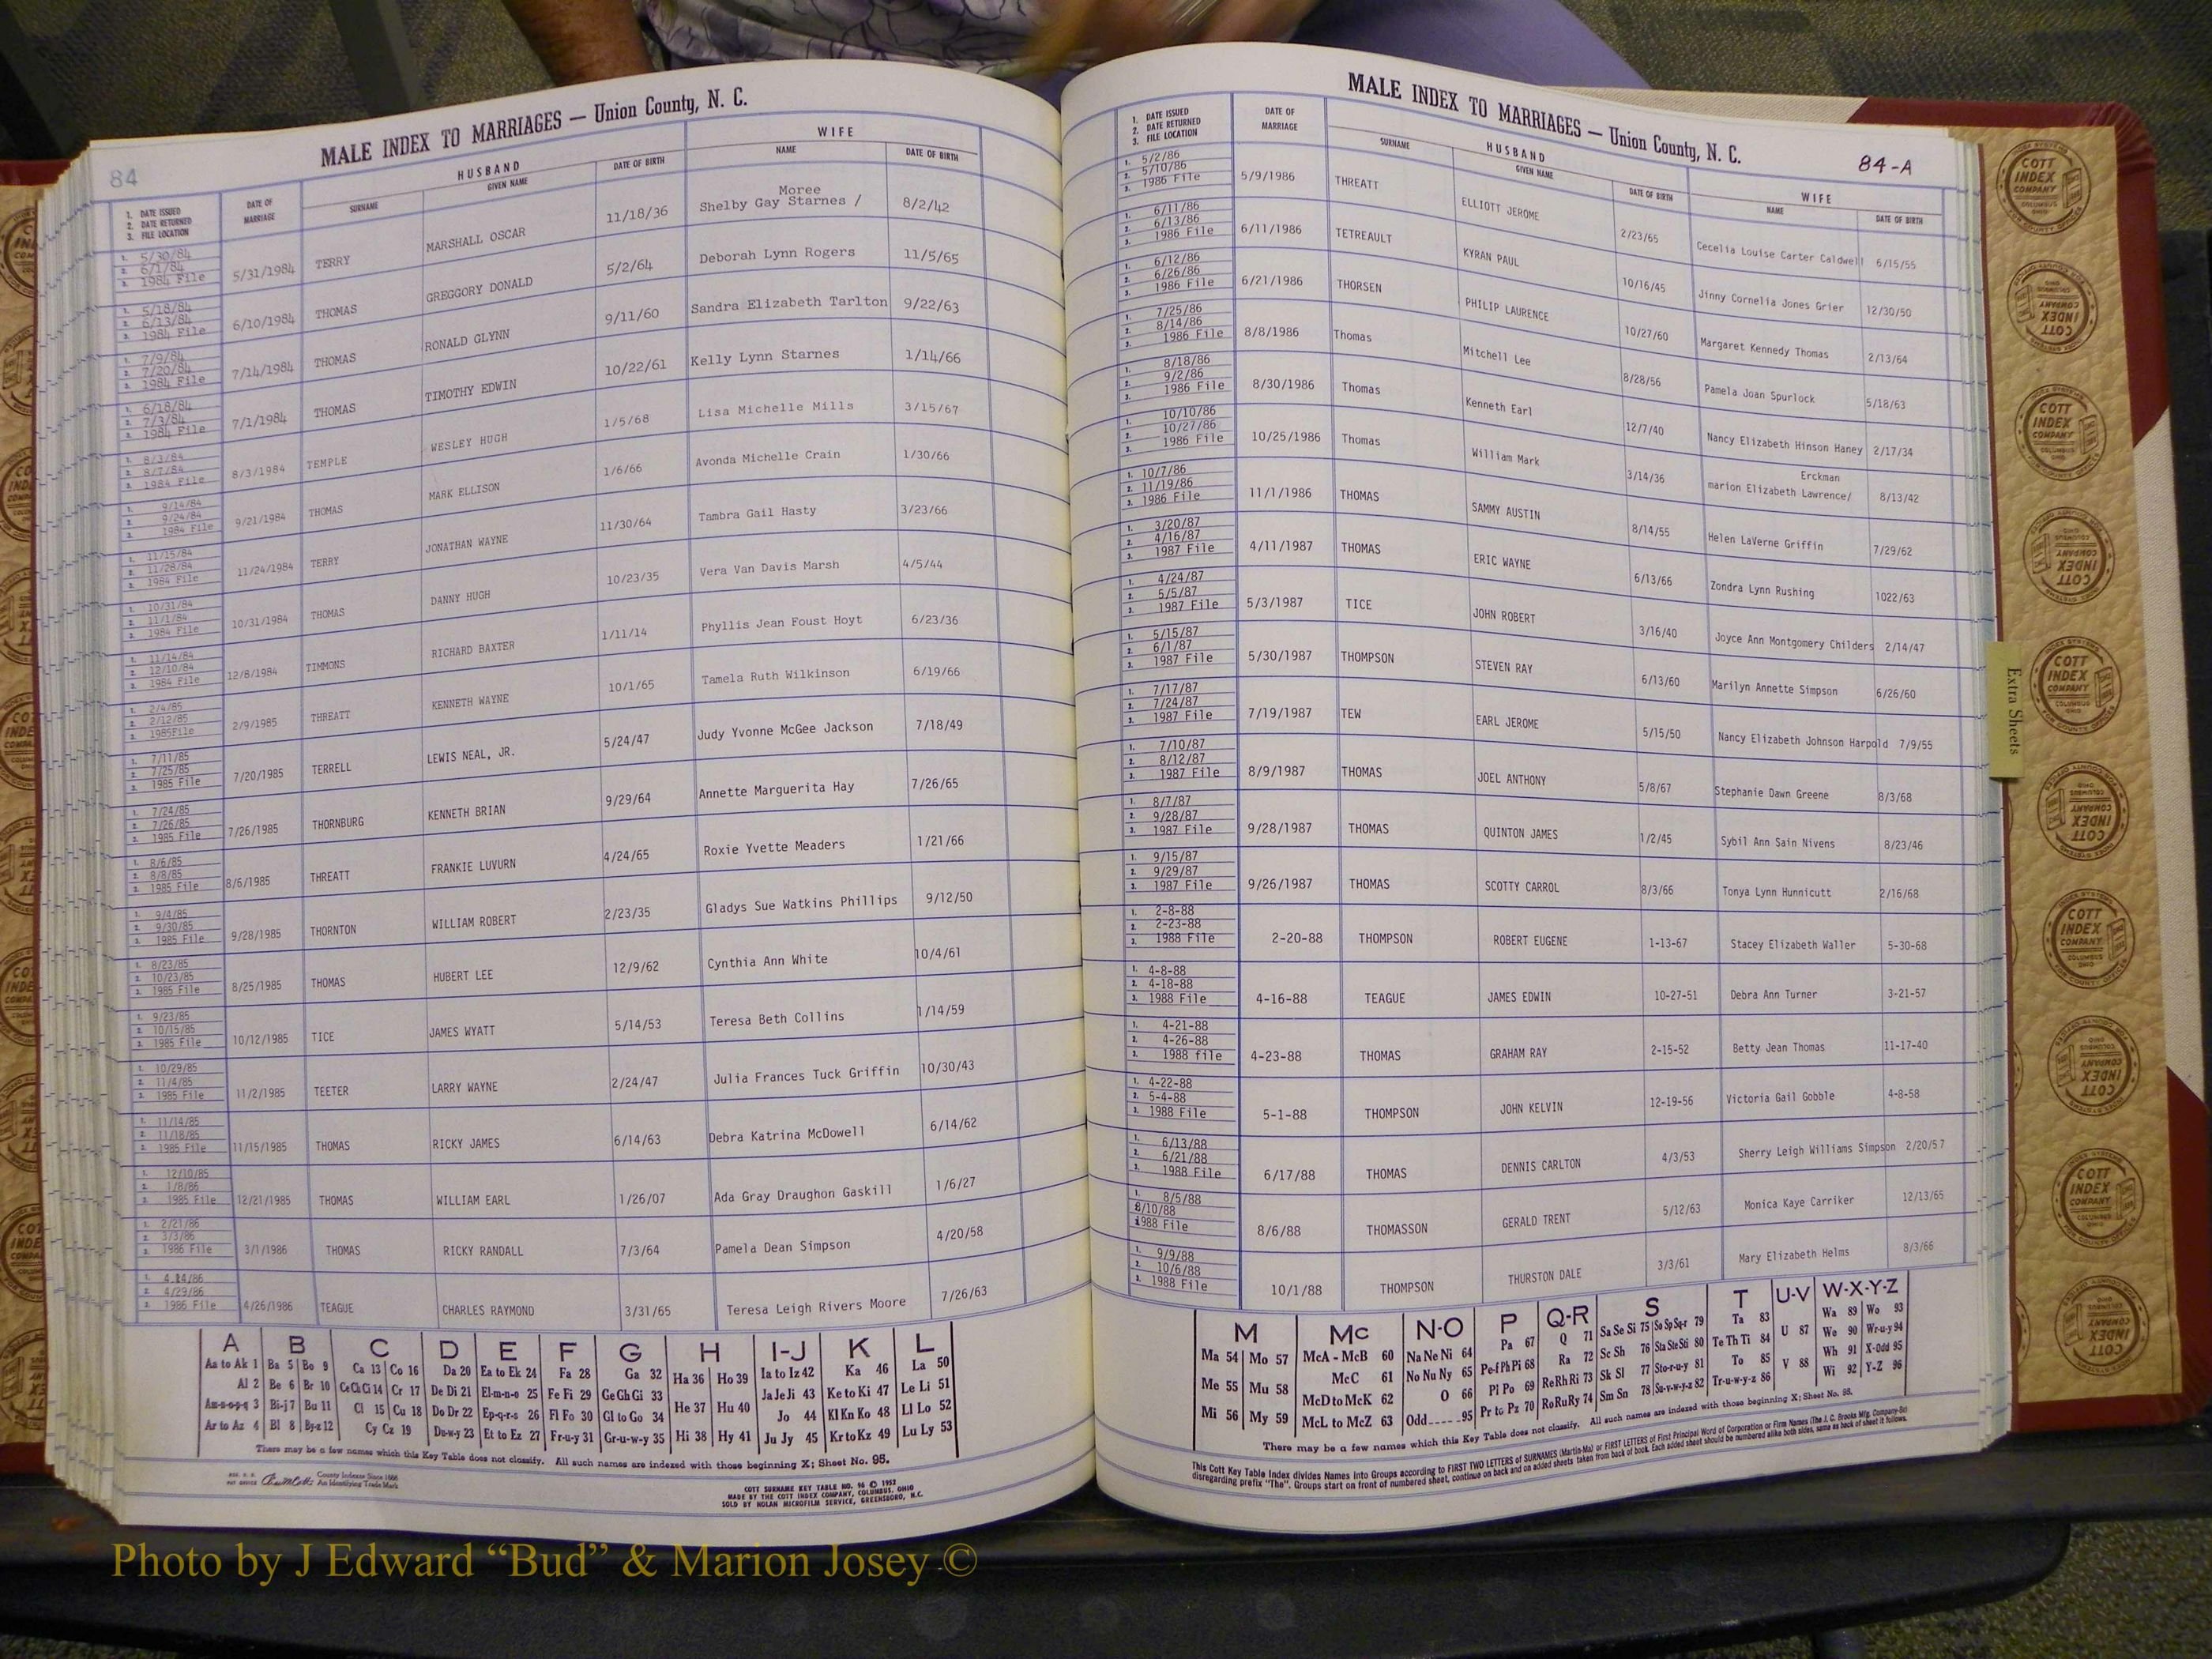 84
MALE INDEX TO MARRIAGES — Union County, N. C.
1. DATE ISSUED 2. DATE RETURNED 3. FILE LOCATION DATE OF MARRIAGE HUSBAND SURNAME GIVEN NAME DATE OF BIRTH WIFE NAME DATE OF BIRTH
1. 5/30/84 2. 6/1/84 3. 1984 File 5/31/1984 TERRY MARSHALL OSCAR 11/18/36 Shelby Gay Starnes / Moree 8/2/42
1. 5/18/84 2. 6/13/84 3. 1984 File 6/10/1984 THOMAS GREGGORY DONALD 5/2/64 Deborah Lynn Rogers 11/5/65
1. 7/9/84 2. 7/20/84 3. 1984 File 7/14/1984 THOMAS RONALD GLYNN 9/11/60 Sandra Elizabeth Tarlton 9/22/63
1. 6/18/84 2. 7/3/84 3. 1984 File 7/1/1984 THOMAS TIMOTHY EDWIN 10/22/61 Kelly Lynn Starnes 1/14/66
1. 8/3/84 2. 8/7/84 3. 1984 File 8/3/1984 TEMPLE WESLEY HUGH 1/5/68 Lisa Michelle Mills 3/15/67
1. 9/14/84 2. 9/24/84 3. 1984 File 9/21/1984 THOMAS MARK ELLISON 1/6/66 Avonda Michelle Crain 1/30/66
1. 11/15/84 2. 11/28/84 3. 1984 File 11/24/1984 TERRY JONATHAN WAYNE 11/30/64 Tambra Gail Hasty 3/23/66
1. 10/31/84 2. 11/1/84 3. 1984 File 10/31/1984 THOMAS DANNY HUGH 10/23/35 Vera Van Davis Marsh 4/5/44
1. 11/14/84 2. 12/10/84 3. 1984 File 12/8/1984 TIMMONS RICHARD BAXTER 1/11/14 Phyllis Jean Foust Hoyt 6/23/36
1. 2/4/85 2. 2/12/85 3. 1985File 2/9/1985 THREATT KENNETH WAYNE 10/1/65 Tamela Ruth Wilkinson 6/19/66
1. 7/11/85 2. 7/25/85 3. 1985 File 7/20/1985 TERRELL LEWIS NEAL, JR. 5/24/47 Judy Yvonne McGee Jackson 7/18/49
1. 7/24/85 2. 7/26/85 3. 1985 File 7/26/1985 THORNBURG KENNETH BRIAN 9/29/64 Annette Marguerita Hay 7/26/65
1. 8/6/85 2. 8/8/85 3. 1985 File 8/6/1985 THREATT FRANKIE LUVURN 4/24/65 Roxie Yvette Meaders 1/21/66
1. 9/4/85 2. 9/30/85 3. 1985 File 9/28/1985 THORNTON WILLIAM ROBERT 2/23/35 Gladys Sue Watkins Phillips 9/12/50
1. 8/23/85 2. 10/23/85 3. 1985 File 8/25/1985 THOMAS HUBERT LEE 12/9/62 Cynthia Ann White 10/4/61
1. 9/23/85 2. 10/15/85 3. 1985 File 10/12/1985 TICE JAMES WYATT 5/14/53 Teresa Beth Collins 1/14/59
1. 10/29/85 2. 11/4/85 3. 1985 File 11/2/1985 TEETER LARRY WAYNE 2/24/47 Julia Frances Tuck Griffin 10/30/43
1. 11/14/85 2. 11/18/85 3. 1985 File 11/15/1985 THOMAS RICKY JAMES 6/14/63 Debra Katrina McDowell 6/14/62
1. 12/10/85 2. 1/8/86 3. 1985 File 12/21/1985 THOMAS WILLIAM EARL 1/26/07 Ada Gray Draughon Gaskill 1/6/27
1. 2/21/86 2. 3/3/86 3. 1986 File 3/1/1986 THOMAS RICKY RANDALL 7/3/64 Pamela Dean Simpson 4/20/58
1. 4.14/86 2. 4/29/86 3. 1986 File 4/26/1986 TEAGUE CHARLES RAYMOND 3/31/65 Teresa Leigh Rivers Moore 7/26/63
A B C D E F G H I-J K L
Aa to Ak 1 Ba 5 Bo 9 Ca 13 Co 16 Da 20 Ea to Ek 24 Fa 28 Ga 32 Ha 36 Ho 39 Ia to Iz 42 Ka 46 La 50
Al 2 Be 6 Br 10 Ce Ch Ci 14 Cr 17 De Di 21 El-m-n-o 25 Fe Fi 29 Ge Gh Gi 33 He 37 Hu 40 Ja Je Ji 43 Ke to Ki 47 Le Li 51
Am-n-o-p-q 3 Bi-j 7 Bu 11 Cl 15 Cu 18 Do Dr 22 Ep-q-r-s 26 Fl Fo 30 Gl to Go 34 Jo 44 Kl Kn Ko 48 Ll Lo 52
Ar to Az 4 Bl 8 By-z 12 Cy Cz 19 Du-w-y 23 Et to Ez 27 Fr-u-y 31 Gr-u-w-y 35 Hi 38 Hy 41 Ju Jy 45 Kr to Kz 49 Lu Ly 53
There may be a few names which this Key Table does not classify. All such names are indexed with those beginning X; Sheet No. 98.
County Indexes Since 1888
An Identifying Trade Mark
COTT SURNAME KEY TABLE NO. 96 © 1952
MADE BY THE COTT INDEX COMPANY, COLUMBUS, OHIO
SOLD BY NOLAN MICROFILM SERVICE, GREENSBORO, N.C.
MALE INDEX TO MARRIAGES — Union County, N. C.
84-A
1. DATE ISSUED 2. DATE RETURNED 3. FILE LOCATION DATE OF MARRIAGE HUSBAND SURNAME GIVEN NAME DATE OF BIRTH WIFE NAME DATE OF BIRTH
1. 5/2/86 2. 5/10/86 3. 1986 File 5/9/1986 THREATT ELLIOTT JEROME 2/23/65 Cecelia Louise Carter Caldwell 6/15/55
1. 6/11/86 2. 6/13/86 3. 1986 File 6/11/1986 TETREAULT KYRAN PAUL 10/16/45 Jinny Cornelia Jones Grier 12/30/50
1. 6/12/86 2. 6/26/86 3. 1986 File 6/21/1986 THORSEN PHILIP LAURENCE 10/27/60 Margaret Kennedy Thomas 2/13/64
1. 7/25/86 2. 8/14/86 3. 1986 File 8/8/1986 Thomas Mitchell Lee 8/28/56 Pamela Joan Spurlock 5/18/63
1. 8/18/86 2. 9/2/86 3. 1986 File 8/30/1986 Thomas Kenneth Earl 12/7/40 Nancy Elizabeth Hinson Haney 2/17/34
1. 10/10/86 2. 10/27/86 3. 1986 File 10/25/1986 Thomas William Mark 3/14/36 marion Elizabeth Lawrence/ Erckman 8/13/42
1. 10/7/86 2. 11/19/86 3. 1986 File 11/1/1986 THOMAS SAMMY AUSTIN 8/14/55 Helen LaVerne Griffin 7/29/62
1. 3/20/87 2. 4/16/87 3. 1987 File 4/11/1987 THOMAS ERIC WAYNE 6/13/66 Zondra Lynn Rushing 1022/63
1. 4/24/87 2. 5/5/87 3. 1987 File 5/3/1987 TICE JOHN ROBERT 3/16/40 Joyce Ann Montgomery Childers 2/14/47
1. 5/15/87 2. 6/1/87 3. 1987 File 5/30/1987 THOMPSON STEVEN RAY 6/13/60 Marilyn Annette Simpson 6/26/60
1. 7/17/87 2. 7/24/87 3. 1987 File 7/19/1987 TEW EARL JEROME 5/15/50 Nancy Elizabeth Johnson Harpold 7/9/55
1. 7/10/87 2. 8/12/87 3. 1987 File 8/9/1987 THOMAS JOEL ANTHONY 5/8/67 Stephanie Dawn Greene 8/3/68
1. 8/7/87 2. 9/28/87 3. 1987 File 9/28/1987 THOMAS QUINTON JAMES 1/2/45 Sybil Ann Sain Nivens 8/23/46
1. 9/15/87 2. 9/29/87 3. 1987 File 9/26/1987 THOMAS SCOTTY CARROL 8/3/66 Tonya Lynn Hunnicutt 2/16/68
1. 2-8-88 2. 2-23-88 3. 1988 File 2-20-88 THOMPSON ROBERT EUGENE 1-13-67 Stacey Elizabeth Waller 5-30-68
1. 4-8-88 2. 4-18-88 3. 1988 File 4-16-88 TEAGUE JAMES EDWIN 10-27-51 Debra Ann Turner 3-21-57
1. 4-21-88 2. 4-26-88 3. 1988 file 4-23-88 THOMAS GRAHAM RAY 2-15-52 Betty Jean Thomas 11-17-40
1. 4-22-88 2. 5-4-88 3. 1988 File 5-1-88 THOMPSON JOHN KELVIN 12-19-56 Victoria Gail Gobble 4-8-58
1. 6/13/88 2. 6/21/88 3. 1988 File 6/17/88 THOMAS DENNIS CARLTON 4/3/53 Sherry Leigh Williams Simpson 2/20/57
1. 8/5/88 8/10/88 1988 File 8/6/88 THOMASSON GERALD TRENT 5/12/63 Monica Kaye Carriker 12/13/65
1. 9/9/88 2. 10/6/88 3. 1988 File 10/1/88 THOMPSON THURSTON DALE 3/3/61 Mary Elizabeth Helms 8/3/66
M Mc N-O P Q-R S T U-V W-X-Y-Z
Ma 54 Mo 57 McA - McB 60 Na Ne Ni 64 Pa 67 Q 71 Sa Se Si 75 So Sp Sq-r 79 Ta 83 U 87 Wa 89 Wo 93
Me 55 Mu 58 McC 61 No Nu Ny 65 Pe-f Ph Pi 68 Ra 72 Sc Sh 76 Sta Ste Sti 80 Te Th Ti 84 We 90 Wr-u-y 94
McD to McK 62 O 66 Pl Po 69 Re Rh Ri 73 Sk Sl 77 Sto-r-u-y 81 To 85 V 88 Wh 91 X-Odd 95
Mi 56 My 59 McL to McZ 63 Odd 95 Pr to Pz 70 Ro Ru Ry 74 Sm Sn 78 Su-v-w-y-z 82 Tr-u-w-y-z 86 Wi 92 Y-Z 96
There may be a few names which this Key Table does not classify. All such names are indexed with those beginning X; Sheet No. 98.
This Cott Key Table Index divides Names into Groups according to FIRST TWO LETTERS of SURNAMES (Martin-Ma) or FIRST LETTERS of First Principal Word of Corporation or Firm Names (The J. C. Brooks Mfg. Company-Br)
disregarding prefix "The". Groups start on front of numbered sheet, continue on back and on added sheets taken from back of book. Each added sheet should be numbered alike both sides, same as back of sheet it follows.
Extra Sheets
COTT INDEX COMPANY COLUMBUS OHIO
Photo by J Edward “Bud” & Marion Josey ©